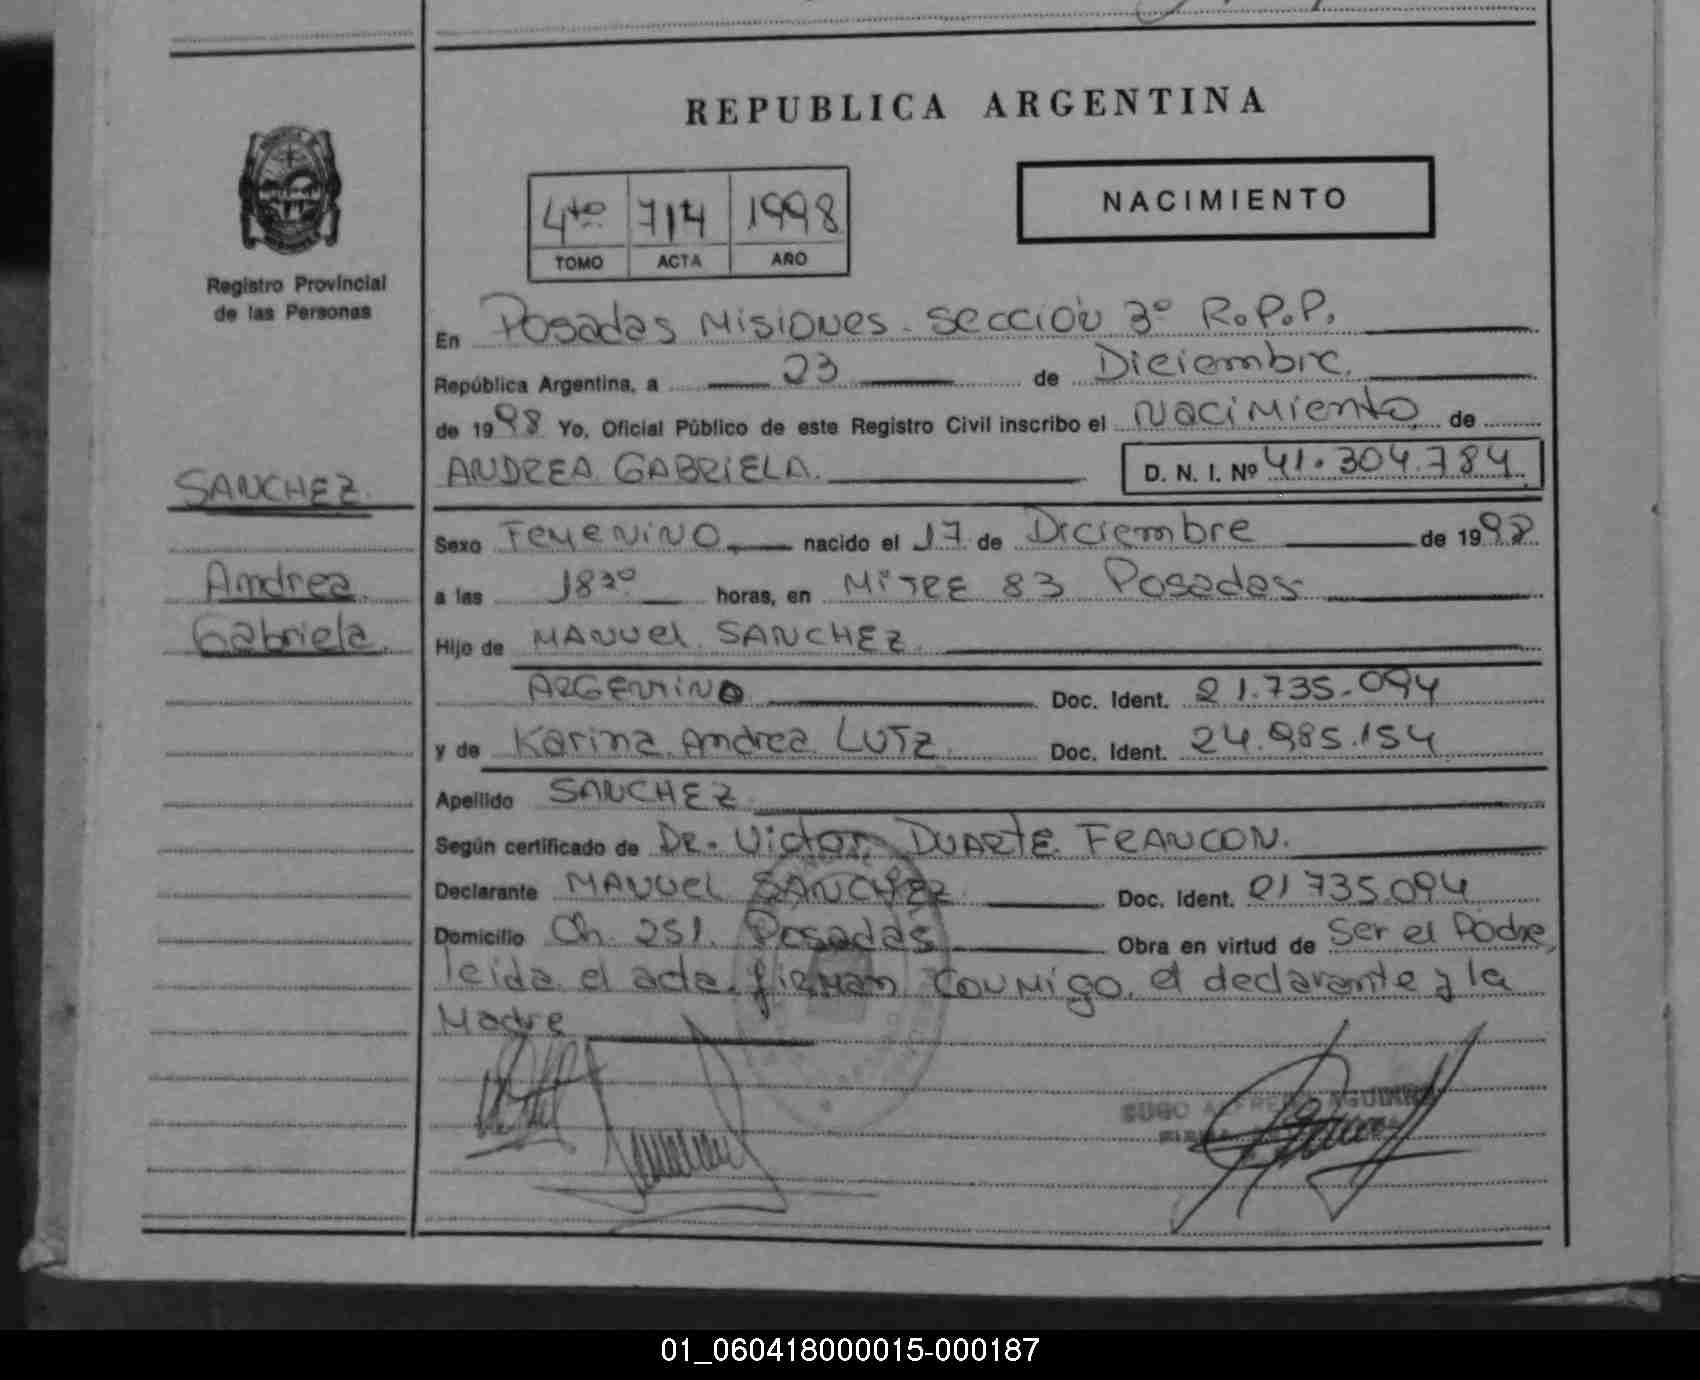 REPUBLICA ARGENTINA
NACIMIENTO
4to 714 1998
TOMO ACTA AÑO
Registro Provincial
de las Personas
En Posadas Misiones. Sección 3º R.P.P.
República Argentina, a 23 de Diciembre.
de 1998 Yo, Oficial Público de este Registro Civil inscribo el Nacimiento de
ANDREA GABRIELA. D. N. I. Nº 41.304.784
SANCHEZ
Andrea
Gabriela
Sexo Femenino nacido el 17 de Diciembre de 1998
a las 18³⁰ horas, en MITRE 83 Posadas
Hijo de MANUEL SANCHEZ
ARGENTINO Doc. Ident. 21.735.094
y de Karina Andrea LUTZ Doc. Ident. 24.985.154
Apellido SANCHEZ
Según certificado de DR. Victor DUARTE FRANCON.
Declarante MANUEL SANCHEZ Doc. Ident. 21735.094
Domicilio Ch. 251. Posadas Obra en virtud de Ser el Padre,
leida el acta firman conmigo, el declarante y la
Madre
AGUIRRE
01_060418000015-000187